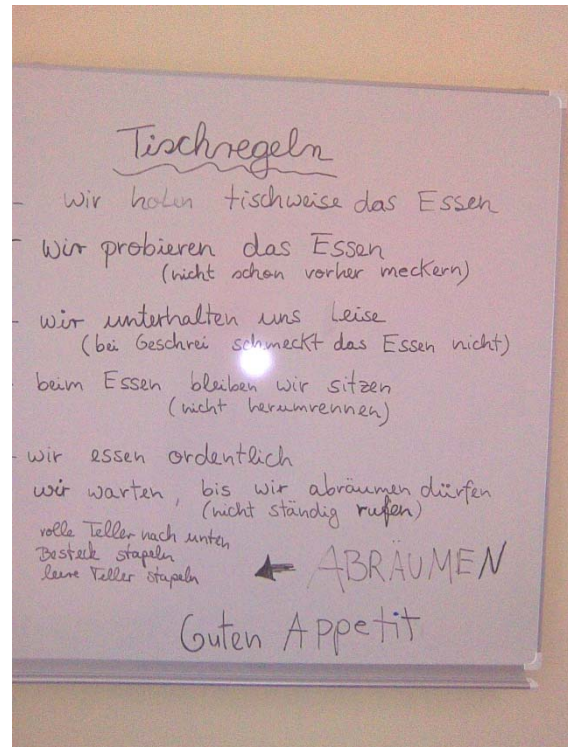 Tischregeln
- wir holen tischweise das Essen
- wir probieren das Essen
(nicht schon vorher meckern)
- wir unterhalten uns leise
(bei Geschrei schmeckt das Essen nicht)
- beim Essen bleiben wir sitzen
(nicht herumrennen)
- wir essen ordentlich
wir warten, bis wir abräumen dürfen
(nicht ständig rufen)
volle Teller nach unten
Besteck stapeln
leere Teller stapeln
← ABRÄUMEN
Guten Appetit